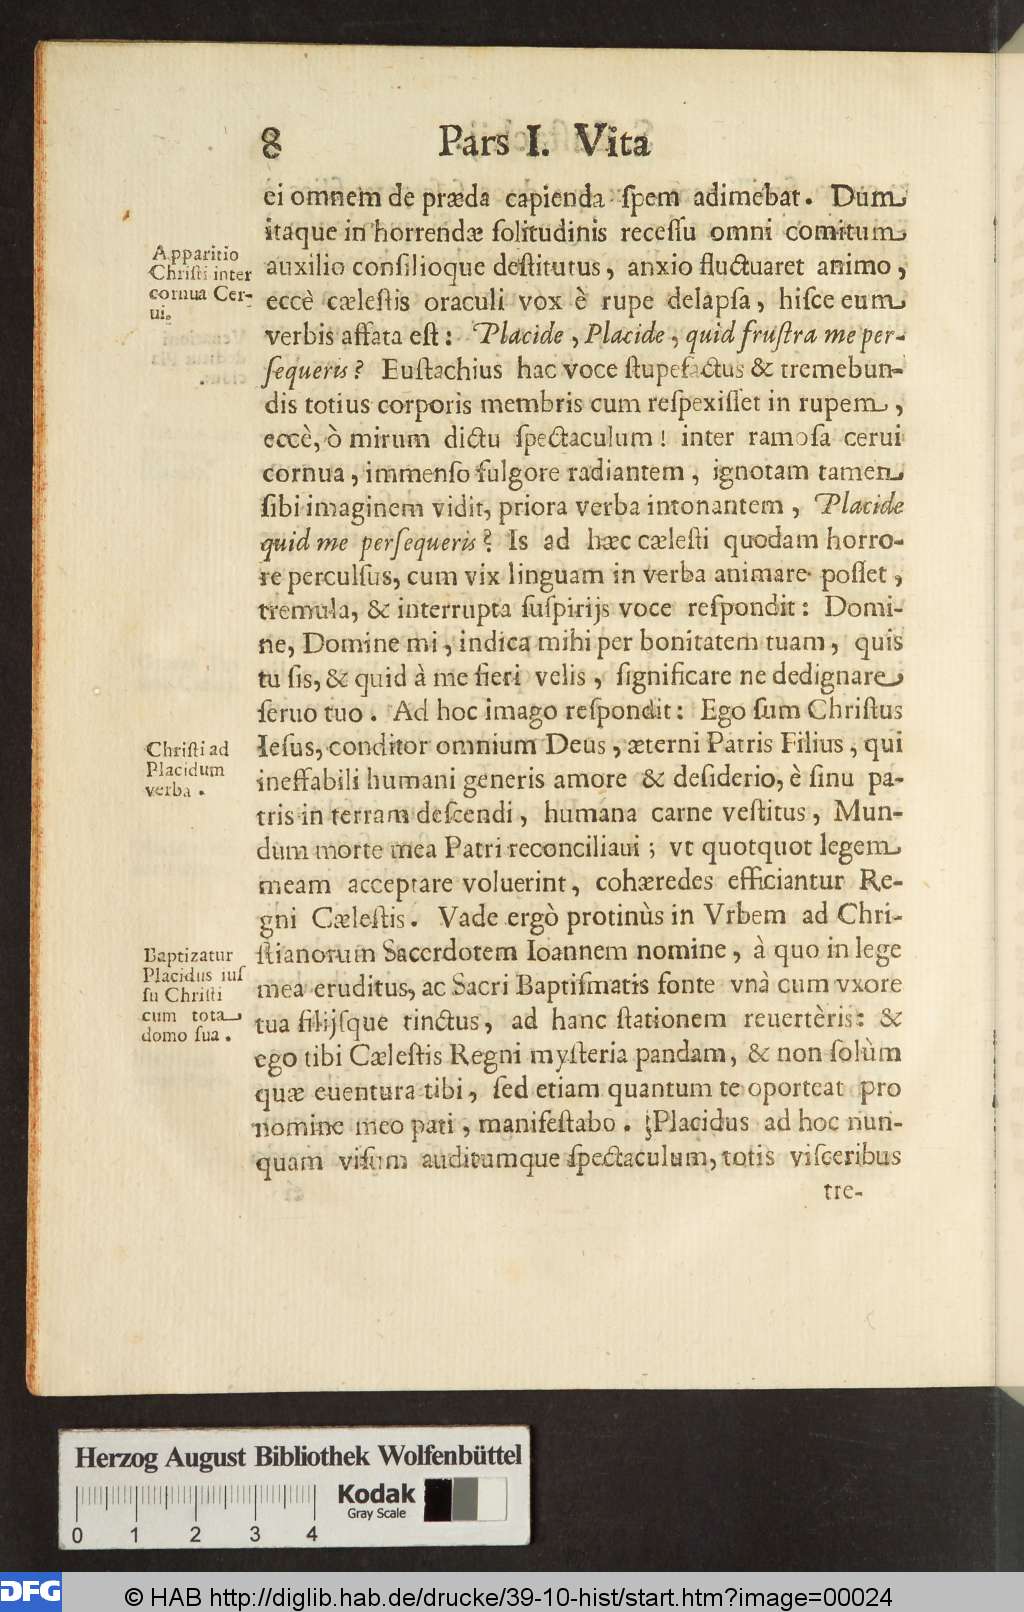 8 Pars I. Vita
ei omnem de præda capienda ſpem adimebat. Dum
itaque in horrendæ ſolitudinis receſſu omni comitum
auxilio conſilioque deſtitutus, anxio fluctuaret animo,
eccè cæleſtis oraculi vox è rupe delapſa, hiſce eum
verbis affata eſt: Placide, Placide, quid fruſtra me per-
ſequeris? Euſtachius hac voce ſtupefactus & tremebun-
dis totius corporis membris cum reſpexiſſet in rupem,
eccè, ò mirum dictu ſpectaculum! inter ramoſa cerui
cornua, immenſo fulgore radiantem, ignotam tamen
ſibi imaginem vidit, priora verba intonantem, Placide
quid me perſequeris? Is ad hæc cæleſti quodam horro-
re perculſus, cum vix linguam in verba animare poſſet,
tremula, & interrupta ſuſpirijs voce reſpondit: Domi-
ne, Domine mi, indica mihi per bonitatem tuam, quis
tu ſis, & quid à me fieri velis, ſignificare ne dedignare
ſeruo tuo. Ad hoc imago reſpondit: Ego ſum Chriſtus
Ieſus, conditor omnium Deus, æterni Patris Filius, qui
ineffabili humani generis amore & deſiderio, è ſinu pa-
tris in terram deſcendi, humana carne veſtitus, Mun-
dum morte mea Patri reconciliaui; vt quotquot legem
meam acceptare voluerint, cohæredes efficiantur Re-
gni Cæleſtis. Vade ergò protinùs in Vrbem ad Chri-
ſtianorum Sacerdotem Ioannem nomine, à quo in lege
mea eruditus, ac Sacri Baptiſmatis fonte vnà cum vxore
tua filijſque tinctus, ad hanc ſtationem reuertèris: &
ego tibi Cæleſtis Regni myſteria pandam, & non ſolùm
quæ euentura tibi, ſed etiam quantum te oporteat pro
nomine meo pati, manifeſtabo. Placidus ad hoc nun-
quam viſum auditumque ſpectaculum, totis viſceribus
tre-
Apparitio
Chriſti inter
cornua Cer-
ui.
Chriſti ad
Placidum
verba.
Baptizatur
Placidus iuſ
ſu Chriſti
cum tota
domo ſua.
Herzog August Bibliothek Wolfenbüttel
Kodak
Gray Scale
0 1 2 3 4
DFG © HAB http://diglib.hab.de/drucke/39-10-hist/start.htm?image=00024